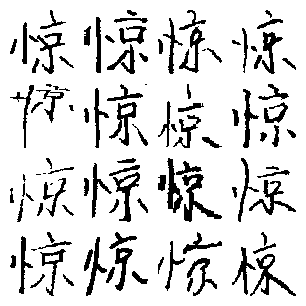 惊惊惊惊
惊惊惊惊
惊惊惊惊
惊惊惊惊